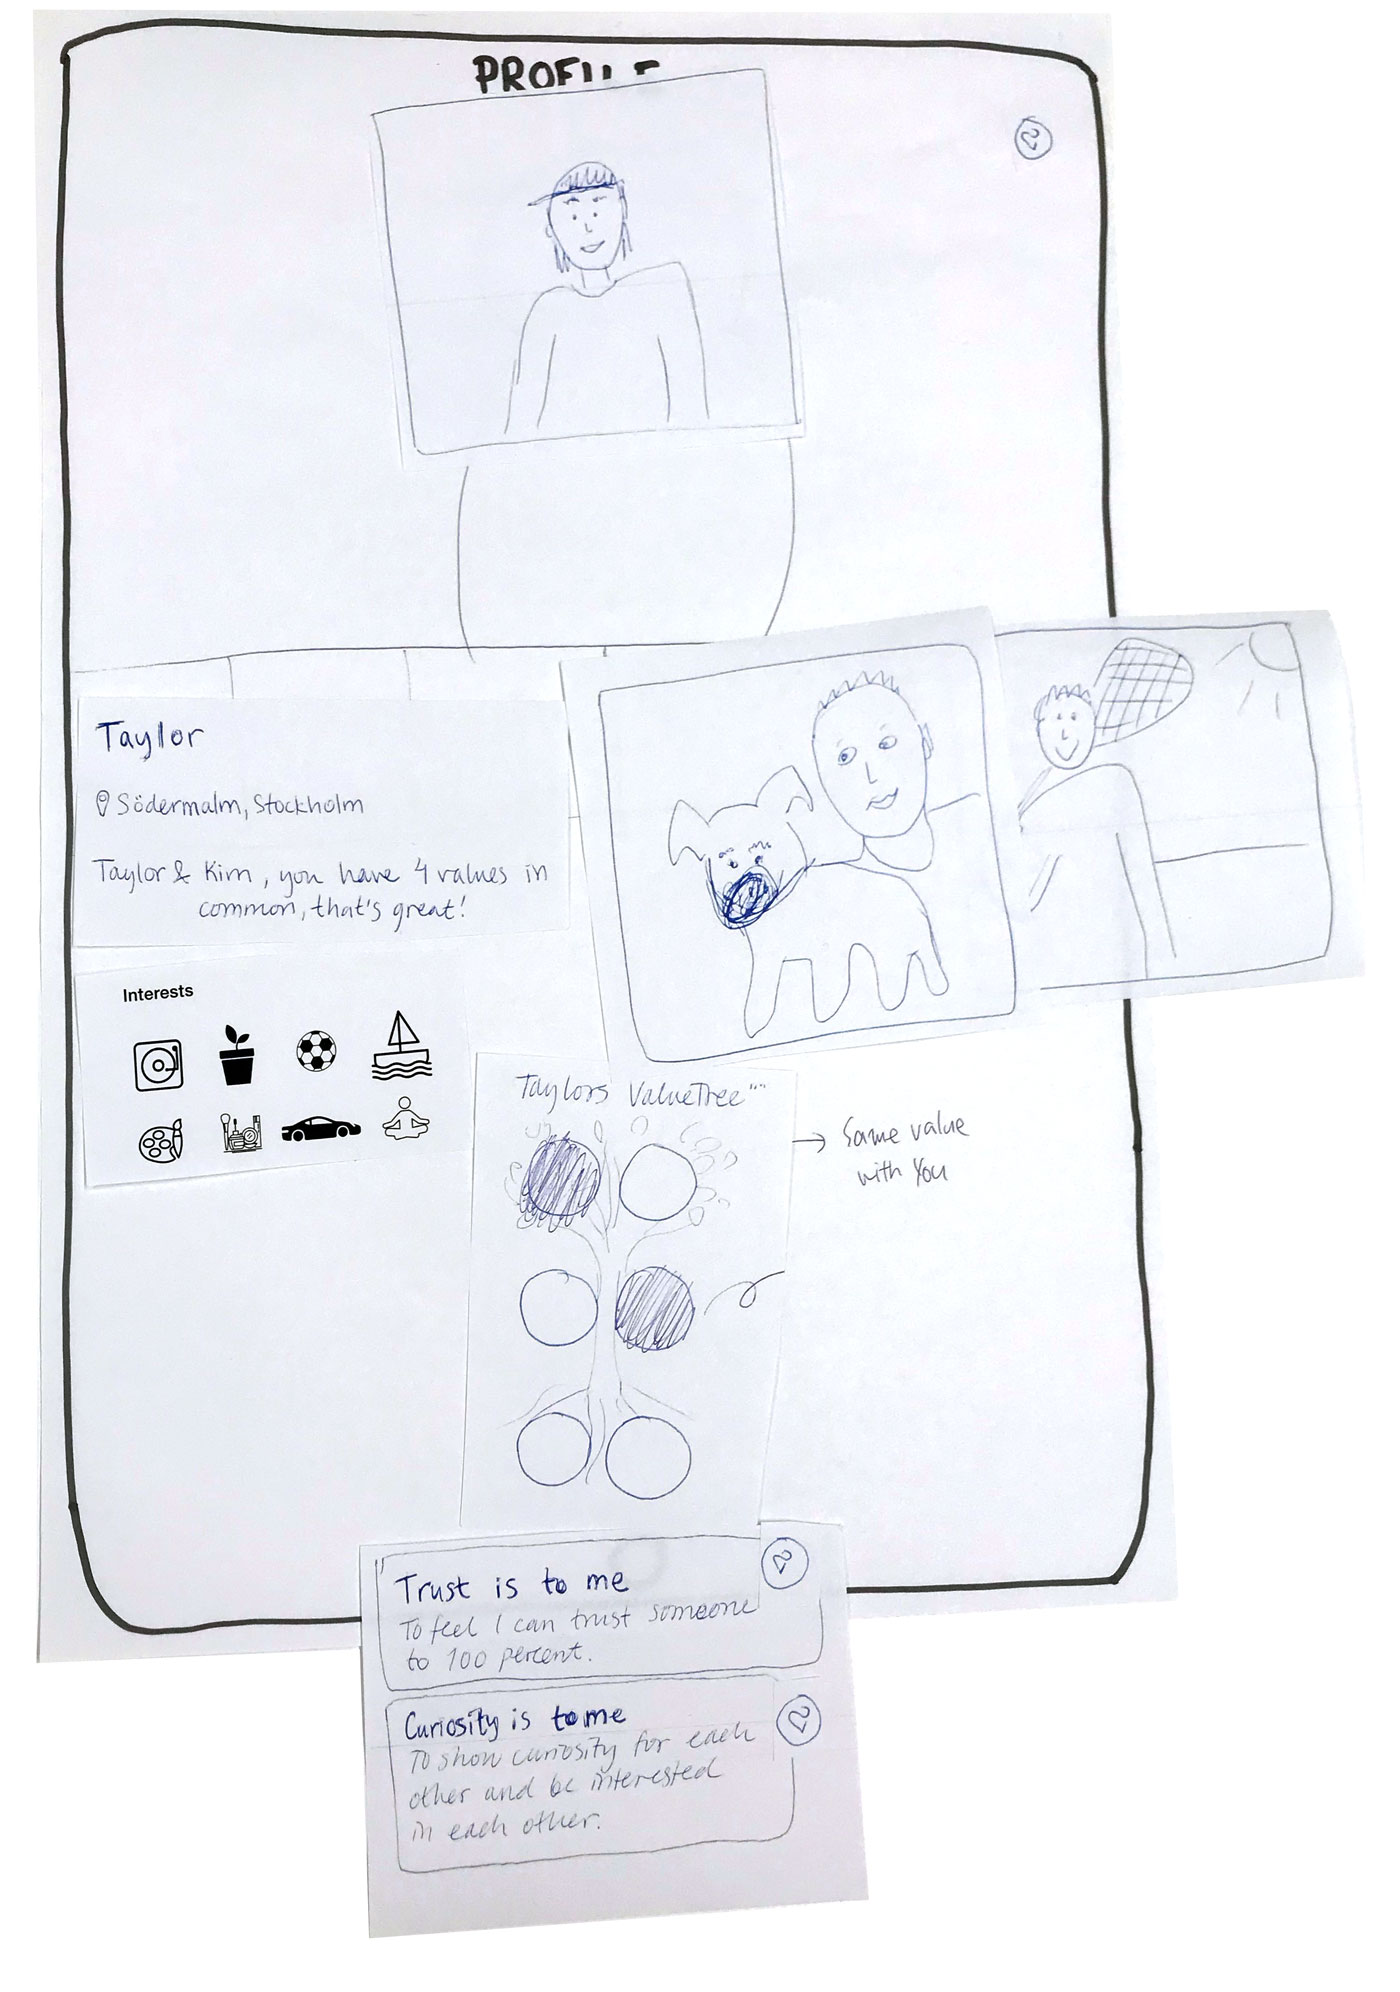 PROFILE
Taylor
Södermalm, Stockholm
Taylor & Kim, you have 4 values in
common, that's great!
Interests
Taylors ValueTree""
→ Same value
with You
Trust is to me
To feel I can trust someone
to 100 percent.
Curiosity is to me
To show curiosity for each
other and be interested
in each other.